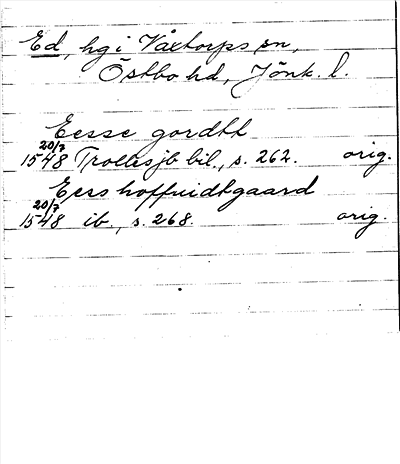 Ed, hg i Våxtorps sn,
Östbo hd, Jönk. l.
Eesse gordtt
20/7
1548 Trollesjb bil., s. 262. orig.
Eers hoffuidtgaard
20/7
1548 ib., s. 268. orig.